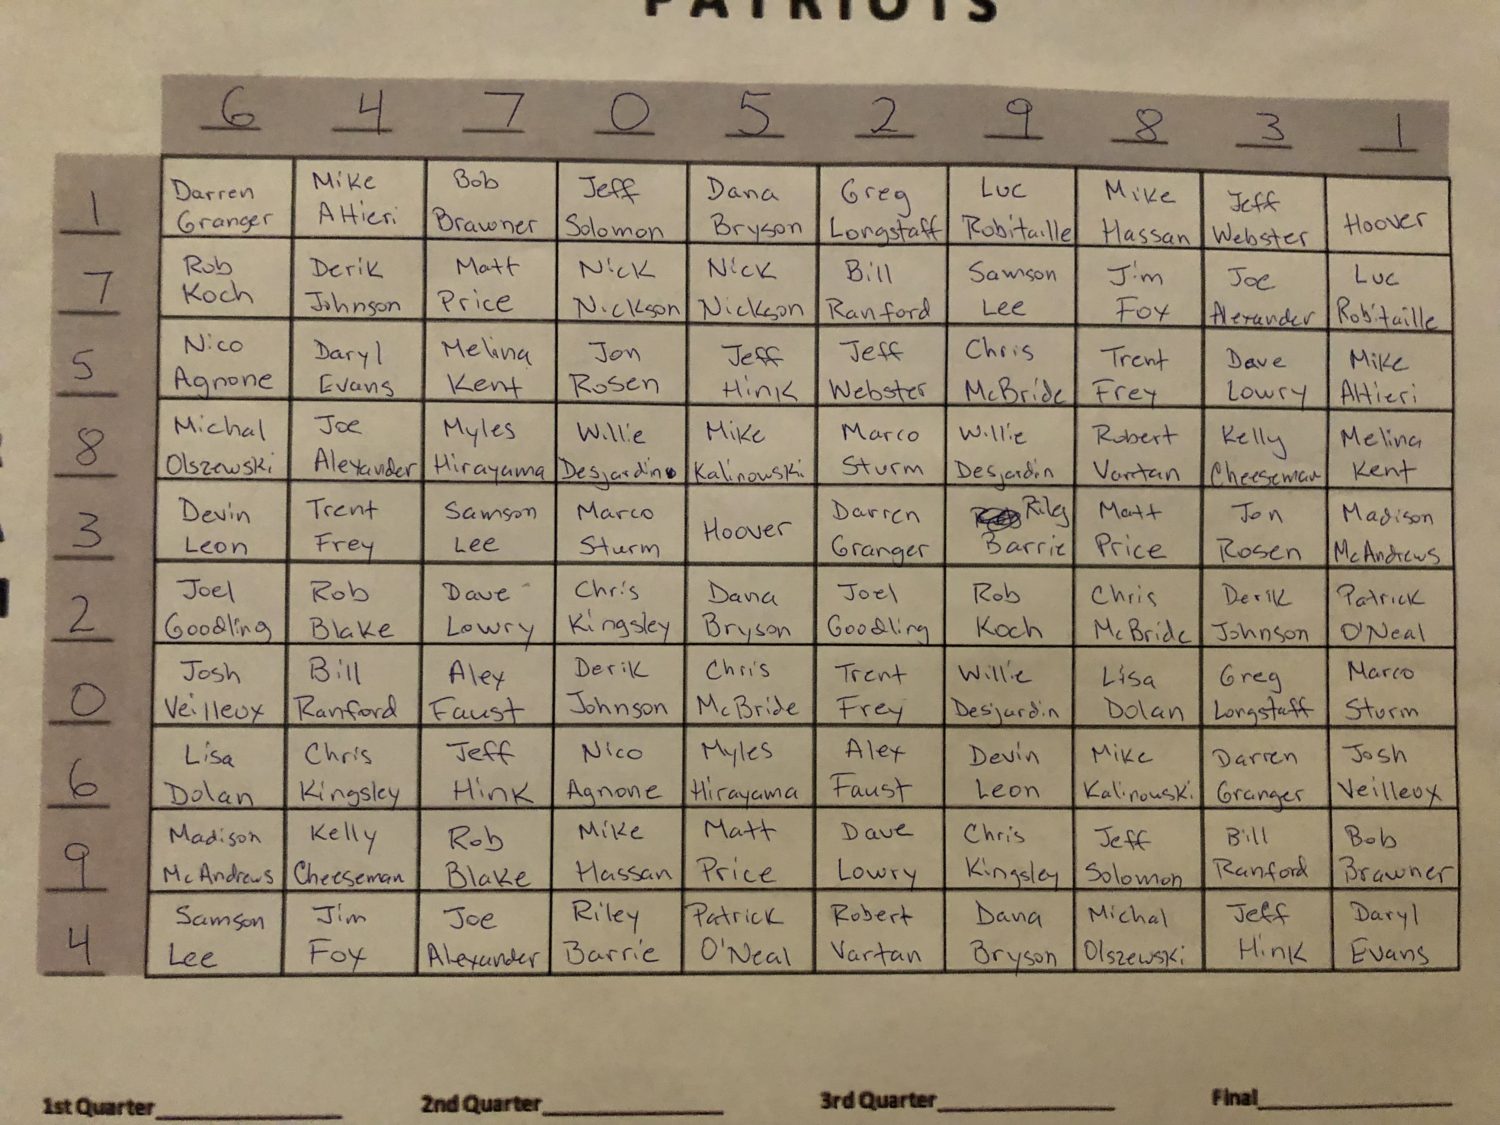 PATRIOTS
6 4 7 0 5 2 9 8 3 1
1 Darren Granger Mike Altieri Bob Brawner Jeff Solomon Dana Bryson Greg Longstaff Luc Robitaille Mike Hassan Jeff Webster Hoover
7 Rob Koch Derik Johnson Matt Price Nick Nickson Nick Nickson Bill Ranford Samson Lee Jim Fox Joe Alexander Luc Robitaille
5 Nico Agnone Daryl Evans Melina Kent Jon Rosen Jeff Hink Jeff Webster Chris McBride Trent Frey Dave Lowry Mike Altieri
8 Michal Olszewski Joe Alexander Myles Hirayama Willie Desjardin Mike Kalinowski Marco Sturm Willie Desjardin Robert Vartan Kelly Cheeseman Melina Kent
3 Devin Leon Trent Frey Samson Lee Marco Sturm Hoover Darren Granger Riley Barrie Matt Price Jon Rosen Madison McAndrews
2 Joel Goodling Rob Blake Dave Lowry Chris Kingsley Dana Bryson Joel Goodling Rob Koch Chris McBride Derik Johnson Patrick O'Neal
0 Josh Veilleux Bill Ranford Alex Faust Derik Johnson Chris McBride Trent Frey Willie Desjardin Lisa Dolan Greg Longstaff Marco Sturm
6 Lisa Dolan Chris Kingsley Jeff Hink Nico Agnone Myles Hirayama Alex Faust Devin Leon Mike Kalinowski Darren Granger Josh Veilleux
9 Madison McAndrews Kelly Cheeseman Rob Blake Mike Hassan Matt Price Dave Lowry Chris Kingsley Jeff Solomon Bill Ranford Bob Brawner
4 Samson Lee Jim Fox Joe Alexander Riley Barrie Patrick O'Neal Robert Vartan Dana Bryson Michal Olszewski Jeff Hink Daryl Evans
1st Quarter 2nd Quarter 3rd Quarter Final